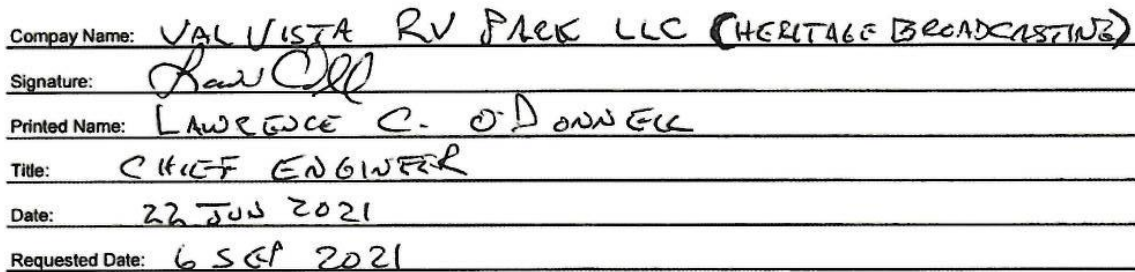 Compay Name: VAL VISTA RV PARK LLC (HERITAGE BROADCASTING)
Signature:
Printed Name: LAWRENCE C. O'DONNELL
Title: CHIEF ENGINEER
Date: 22 JUN 2021
Requested Date: 6 SEP 2021